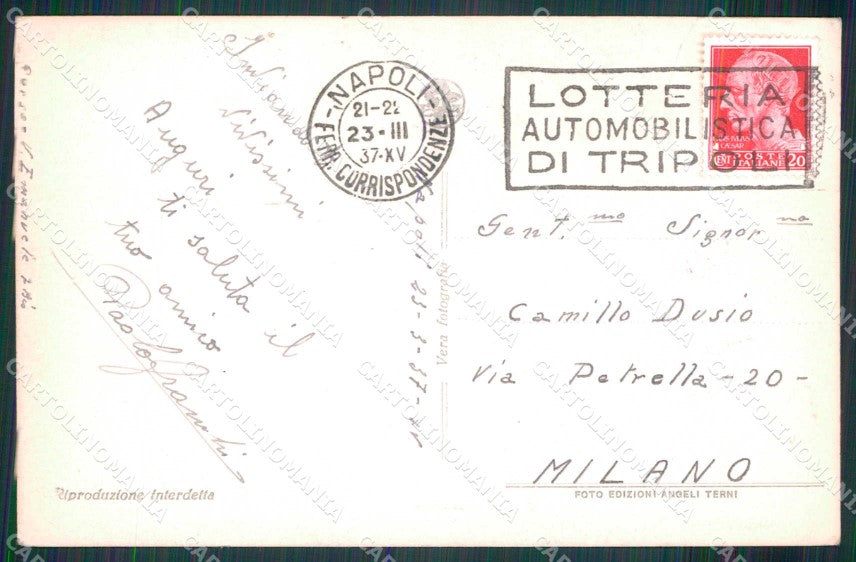 Inviando
vivissimi
Auguri
ti saluta il
tuo amico
Napoli 23-3-37-XV
NAPOLI
21-22
23-III
37-XV
FERR. CORRISPONDENZE
LOTTERIA
AUTOMOBILISTICA
DI TRIPOLI
CAESAR
CENT POSTE 20
ITALIANE
Gent.mo Signor
Camillo Dusio
Via Petrella -20-
MILANO
Vera fotografia
Riproduzione interdetta
FOTO EDIZIONI ANGELI TERNI
CARTOLINOMANIA